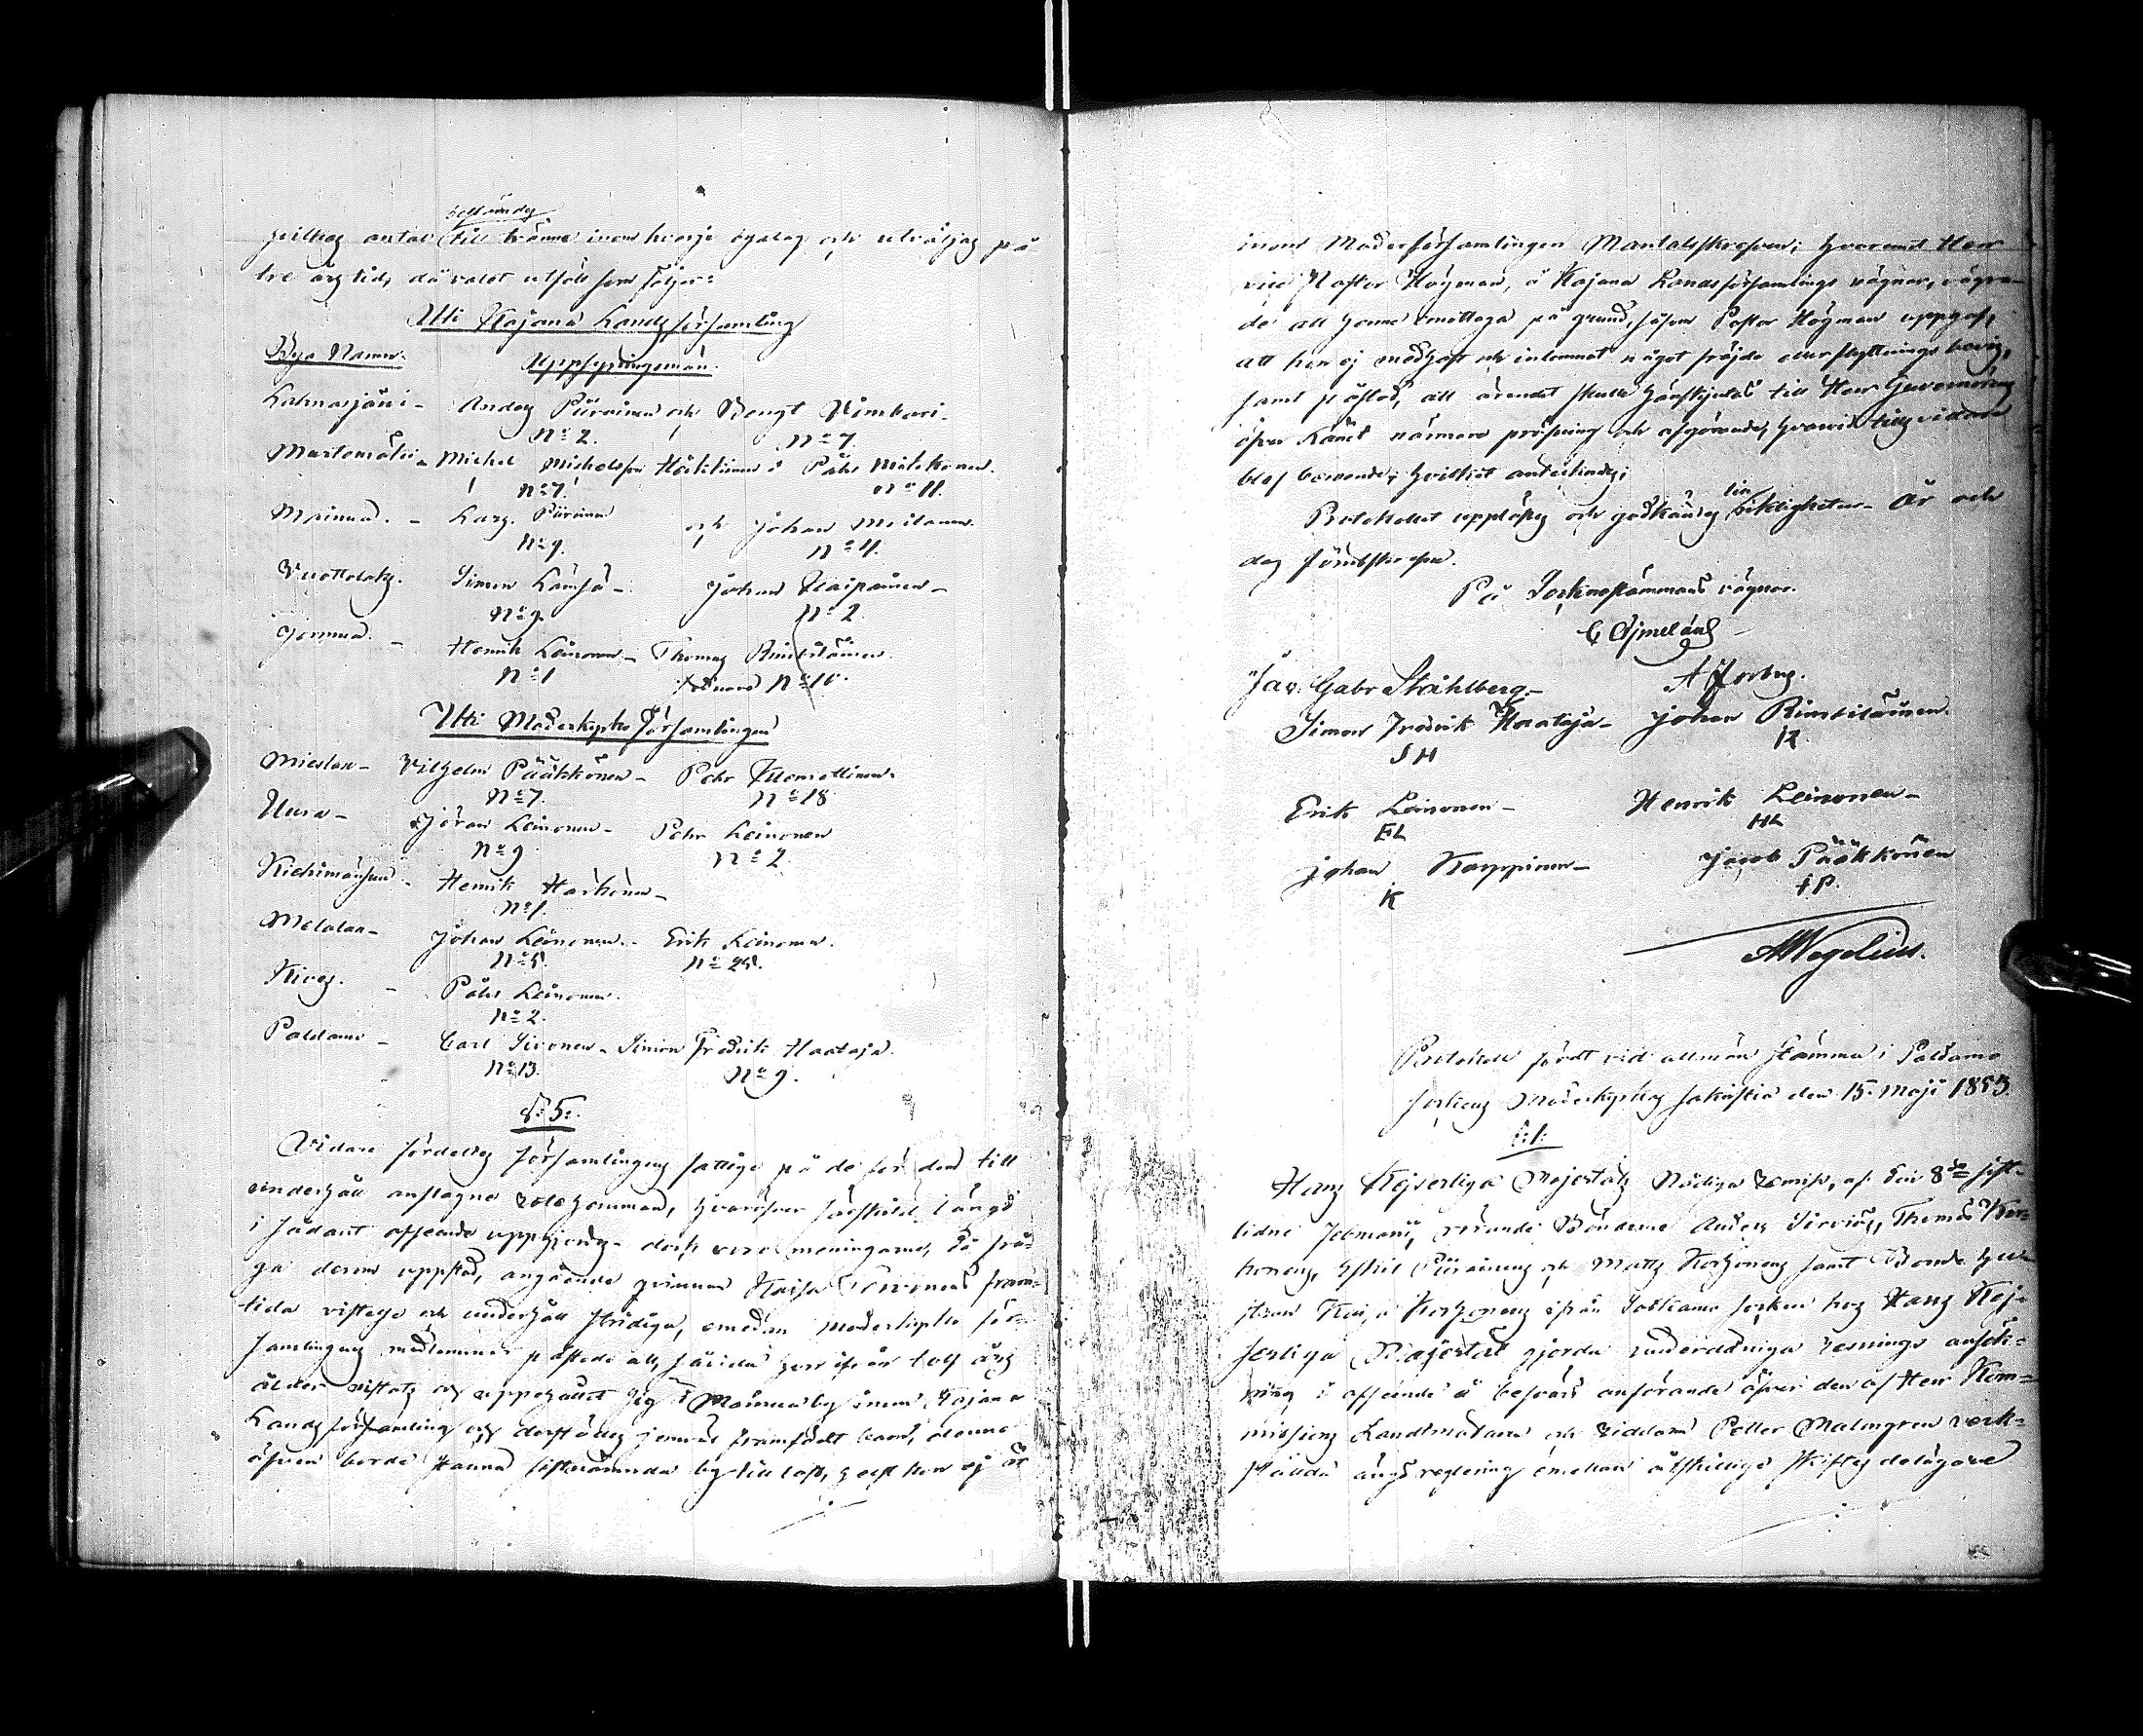 bestämdes
hvilkas antal till tvänne inom hvarje byalag och utväljas på
tre års tid, då valet utföll som följer:
Uti Kajana Landsförsamling
Bya Namn. Uppsyningsmän.
Lahnasjärvi - Anders Piirainen och Bengt
N:o 2. N:o 7.
Michel Michelsson och Påhl
N:o 7. N:o 11.
Mainua. - Lars Piirainen och Johan
N:o 9. N:o 4.
Vuottolahti. Simon Kämsä - Johan
N:o 9. N:o 2.
Jormua. - Henrik Leinonen - Thomas Rimpiläinen.
N:o 1 N:o 10.
Uti Moderkyrko Församlingen
Mieslax - Vilhelm Pääkkönen - Pehr
N:o 7. N:o 18
Uura - Göran Leinonen - Pehr Leinonen
N:o 9 N:o 2.
Kiehimänsuu - Henrik Härkönen -
N:o 1.
Melalax - Johan Leinonen - Erik Leinonen.
N:o 5. N:o 25.
Kives. - Påhl Leinonen.
N:o 2.
Paldamo - Carl Sironen - Simon Fredrik Haataja.
N:o 13. N:o 9.
§. 5.
Vidare fördeltes församlingens fattige på de för dem till
underhåll anslagne rotehemman, hvaröfver särskild längd
i sådant afseende upprättades - dock voro meningarne, då frå-
ga derom uppstod, angående qvinnan Kaisa framtida
vistelse och underhåll stridiga, emedan moderkyrko för-
samlingens medlemmar påstodo att, såvida hon ifrån tolf års
ålder vistats och uppehållit sig i Mainua by inom Kajana
Landsförsamling och derstädes jemväl framfödt barn, denne
äfven borde sistnämnda by till last, helst hon ej är
inom Moderförsamlingen Mantalsskrefven; hvaremot Herr
vice Pastor Högman, å Kajana Landsförsamlings vägnar, vägra-
de att henne emottaga på grund, såsom Pastor Högman uppgaf,
att hon ej medhaft och inlemnat något fräjde eller flyttnings bevis,
samt påstod, att ärendet skulle hänskjutas till Herr Gouverneurens
öfver Länet närmare pröfning och afgörande, hvarvid tills vidare
blef beroende; hvilket antecknades;
lin
Protokollet uppläses och godkändes riktigheten - År och
dag somföreskrefvet.
På Sockenstämmans vägnar.
C Ajmelæus
Jac. Gabr Ståhlberg - A
Simon Fredrik Haataja - Johan Rimpiläinen.
SH R
Erik Leinonen - Henrik Leinonen -
EL HL
Johan Karppinen - Jacob Pääkkönen
K IP.
AWegelius.
Protokoll fördt vid allmän stämma i Paldamo
sockens Moderkyrkas sakristia den 15. Maji 1853.
§. 1.
Hans Kejserliga Majestäts Nådiga remiss, af den 8de sist-
lidne Februarii, rörande Bönderne Anders Thomas
Eskil Piirainens och Matts Korhonens samt Bonde hu-
strun Kaisa Korhonens ifrån Sotkamo socken hos Hans Kej-
serliga Majestät gjorda underdåniga resnings ansök-
ning i afseende å besvärs anförande öfver den af Herr Kom-
missions Landtmätaren och Riddaren Petter Malmgren verk-
ställda ängs reglering emellan åtskillige skiftes delägare